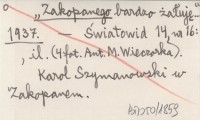 „Zakopanego bardzo żałuję..."
1937. — Światowid 14, na 16:
, il. (4 fot. Ant. M. Wieczorka).
Karol Szymanowski w
Zakopanem.